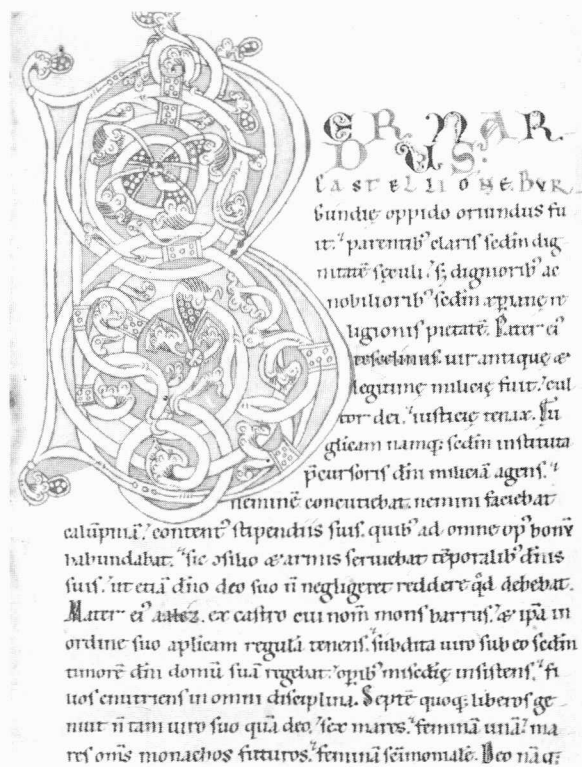 BERNAR
DUS:
CASTELLIONE. BUR
gundię oppido oriundus fu
it. parentib' claris sedm dig
nitatē sęculi. s; dignorib' ac
nobiliorib' sedm xpianę re
ligionis pietatē. Pater ei'
tescelinus. uir antiquę &
legitimę milicię fuit. cul
tor dei. iusticię tenax. Eu
glicam namq: sedm instituta
p̄cursoris dni miliciā agens.
neminē concutiebat. nemini faciebat
calūpniā. content' stipendiis suis. quib' ad omne op' bonū
habundabat. sic ɔsilio & armis seruiebat tēporalib' dn̄is
suis. ut etiā dn̄o deo suo n̄ negligeret reddere qd̄ debebat.
Mater ei' aalez. ex castro cui nom̄ mons barrus. & ip̄a in
ordine suo aplicam regulā tenens. subdita uiro sub eo sedm
timorē dn̄i domū suā regebat. opib' misc̄dię insistens. fi
lios enutriens in omni disciplina. Septē quoq; liberos ge
nuit n̄ tam uiro suo quā deo. sex mares. feminā unā. ma
res om̄s monachos futuros. feminā sc̄imonialē. Deo nāq: